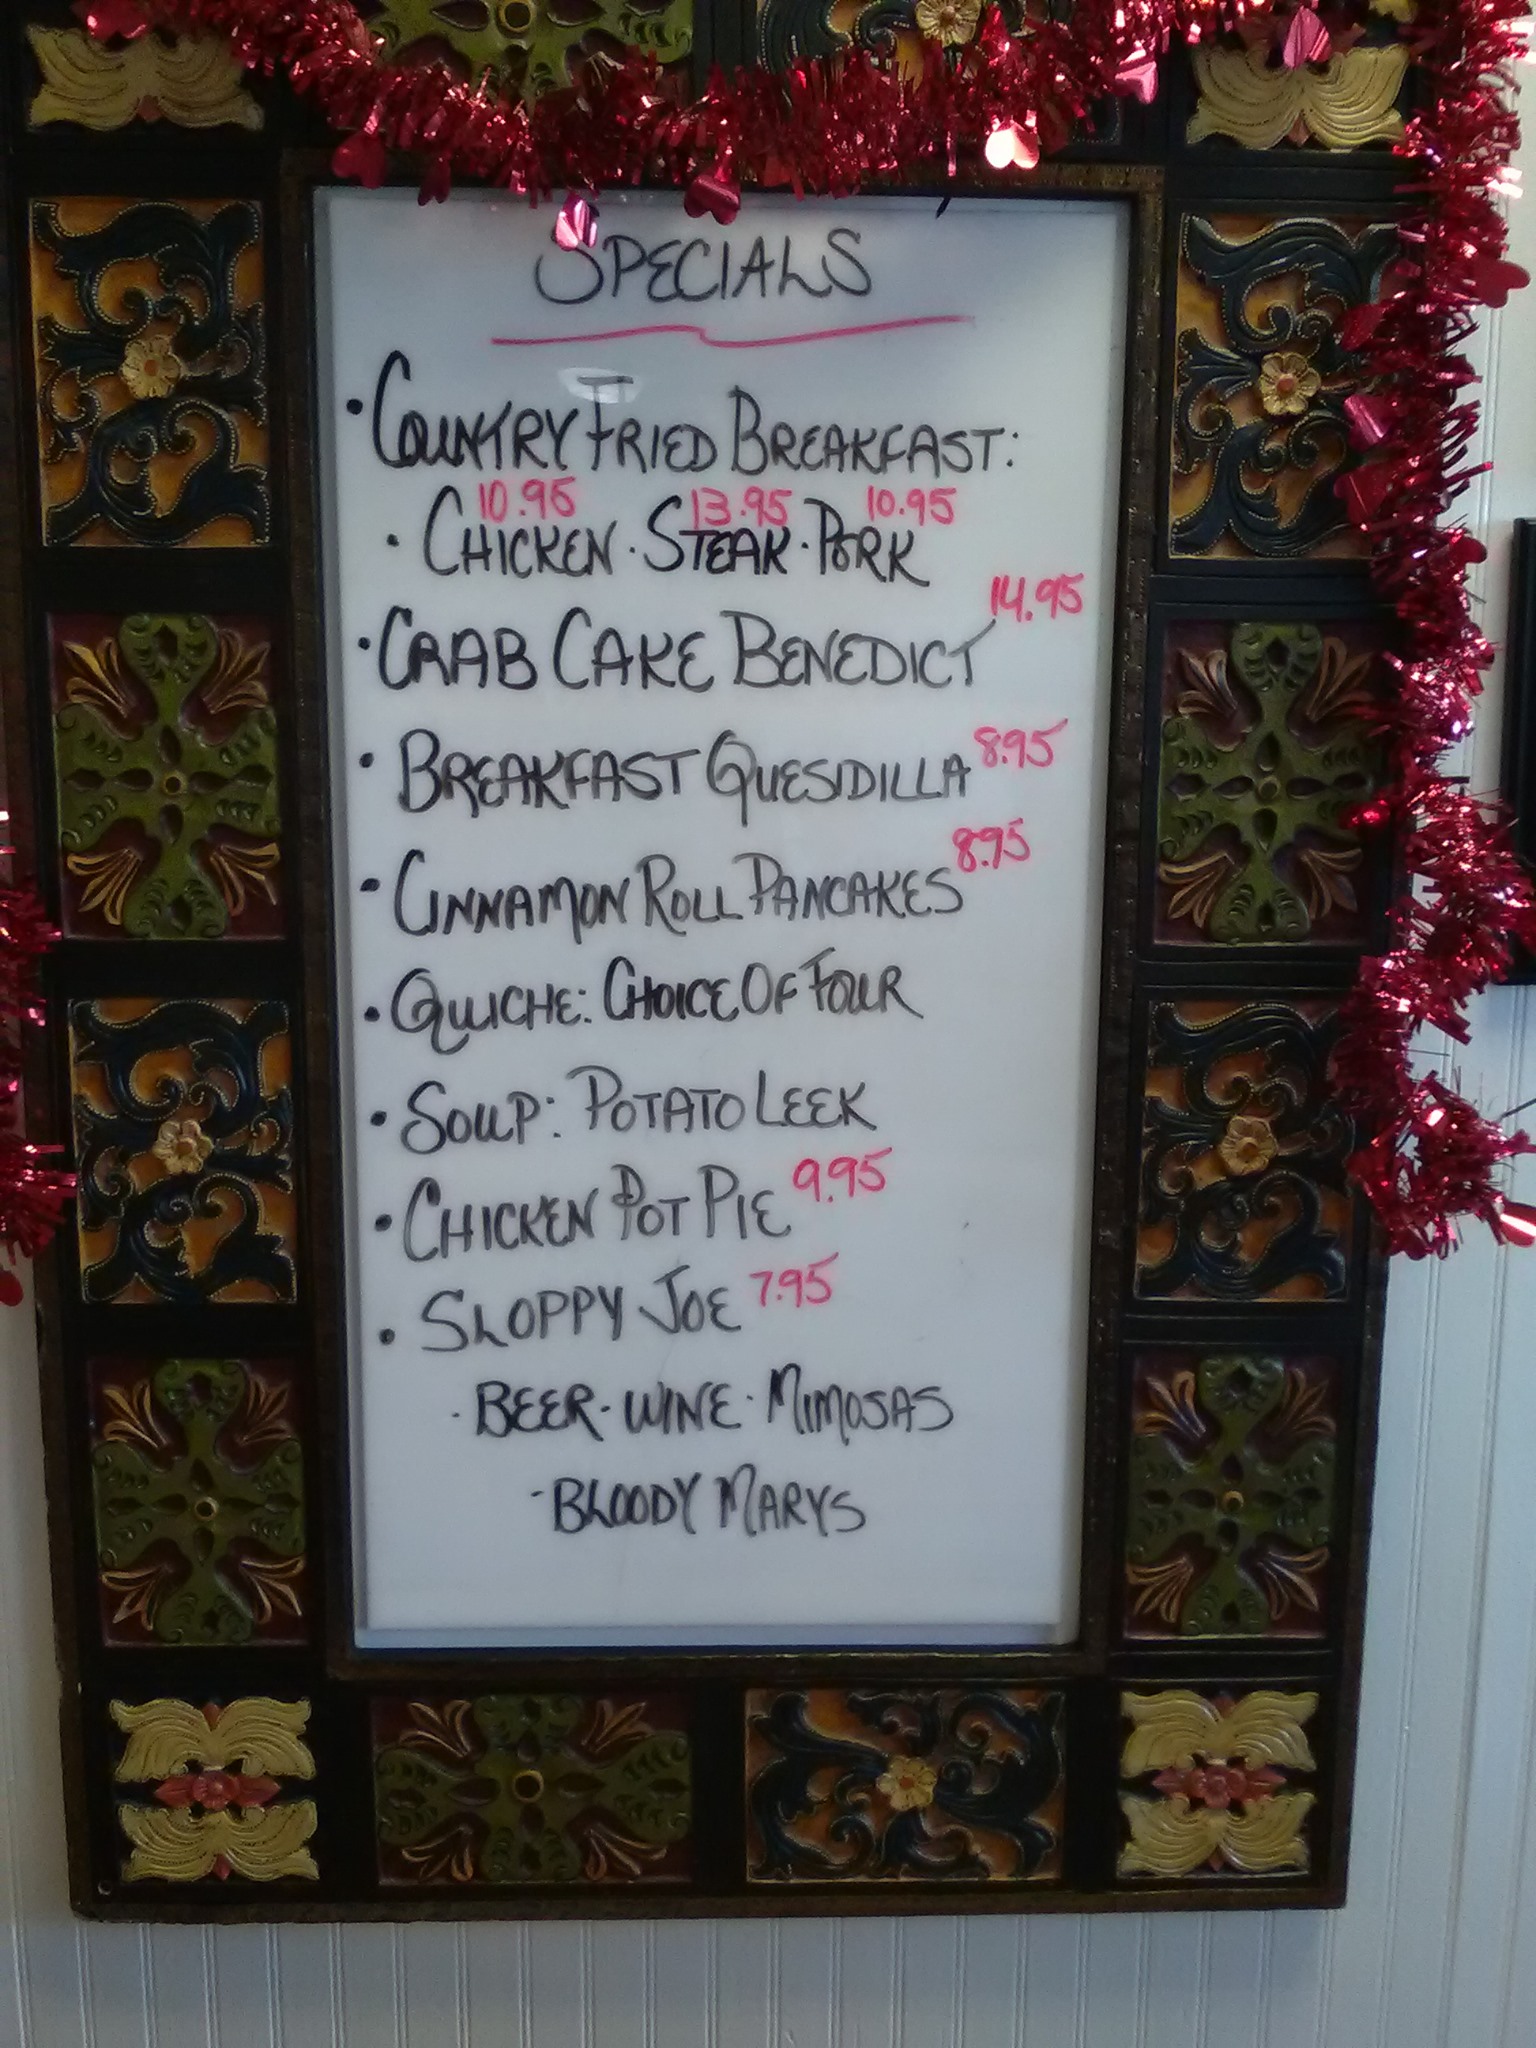 SPECIALS
• COUNTRY FRIED BREAKFAST:
10.95 13.95 10.95
• CHICKEN · STEAK · PORK
14.95
• CRAB CAKE BENEDICT
• BREAKFAST QUESIDILLA 8.95
• CINNAMON ROLL PANCAKES 8.95
• QUICHE: CHOICE OF FOUR
• SOUP: POTATO LEEK
• CHICKEN POT PIE 9.95
• SLOPPY JOE 7.95
· BEER · WINE · MIMOSAS
· BLOODY MARYS